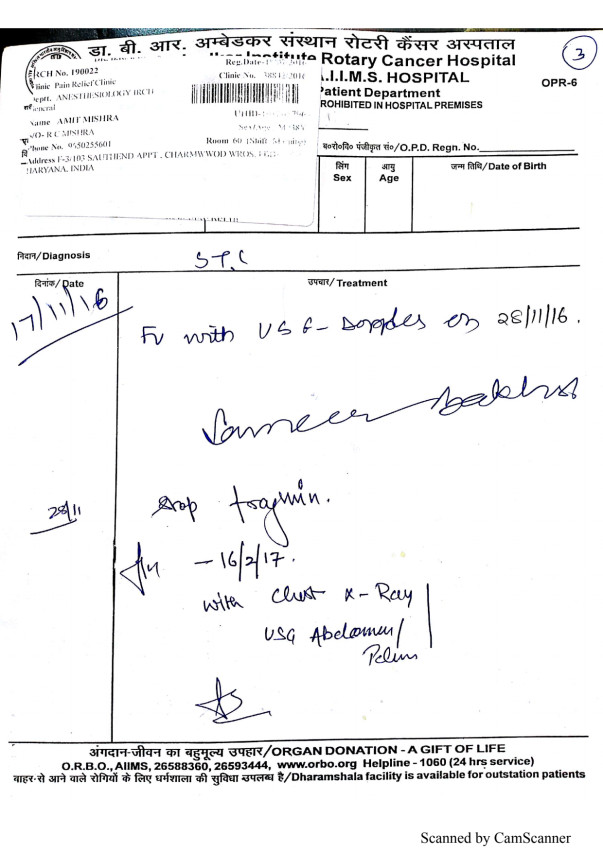 डा. बी. आर. अम्बेडकर संस्थान रोटरी कैंसर अस्पताल
Institute Rotary Cancer Hospital
A.I.I.M.S. HOSPITAL
OPR-6
3
Patient Department
PROHIBITED IN HOSPITAL PREMISES
IRCH No. 190022
Clinic Pain Relief Clinic
Deptt. ANESTHESIOLOGY IRCH
General
Name AMIT MISHRA
S/O- R C MISHRA
Phone No. 9550255601
Address F-3/103 SAUTHEND APPT , CHARMWWOD
HARYANA, INDIA
Reg.Date-
Clinic No.
UHID-
Sex/Age
Room 60
ब०रो०वि० पंजीकृत सं०/O.P.D. Regn. No.
लिंग
Sex
आयु
Age
जन्म तिथि/Date of Birth
निदान/Diagnosis
दिनांक/Date
उपचार/Treatment
17/11/16
FU with USG- Doppler on 28/11/16.
28/11
Stop fragmin.
- 16/2/17.
with Chest X-Ray
USG Abdomen/
Pelvis
अंगदान-जीवन का बहुमूल्य उपहार/ORGAN DONATION - A GIFT OF LIFE
O.R.B.O., AIIMS, 26588360, 26593444, www.orbo.org Helpline - 1060 (24 hrs service)
बाहर से आने वाले रोगियों के लिए धर्मशाला की सुविधा उपलब्ध है/Dharamshala facility is available for outstation patients
Scanned by CamScanner